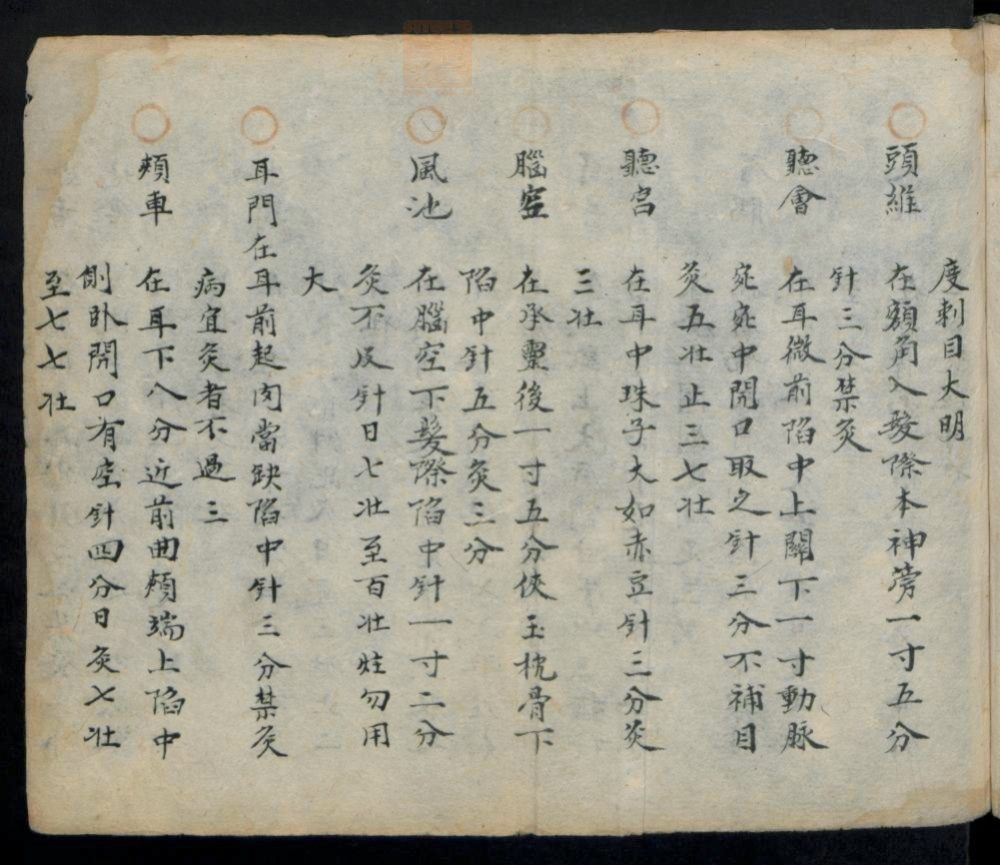 度刺目大明
頭維 在額角入髮際本神旁一寸五分
針三分禁灸
聽會 在耳微前陷中上關下一寸動脉
宛宛中開口取之針三分不補日
灸五壯止三七壯
聽宮 在耳中珠子大如赤豆針三分灸
三壯
腦空 在承靈後一寸五分俠玉枕骨下
陷中針五分灸三分
風池 在腦空下髮際陷中針一寸二分
灸不及針日七壯至百壯炷勿用
大
耳門在耳前起肉當缺陷中針三分禁灸
病宜灸者不過三
頰車 在耳下八分近前曲頰端上陷中
側卧開口有空針四分日灸七壯
至七七壯